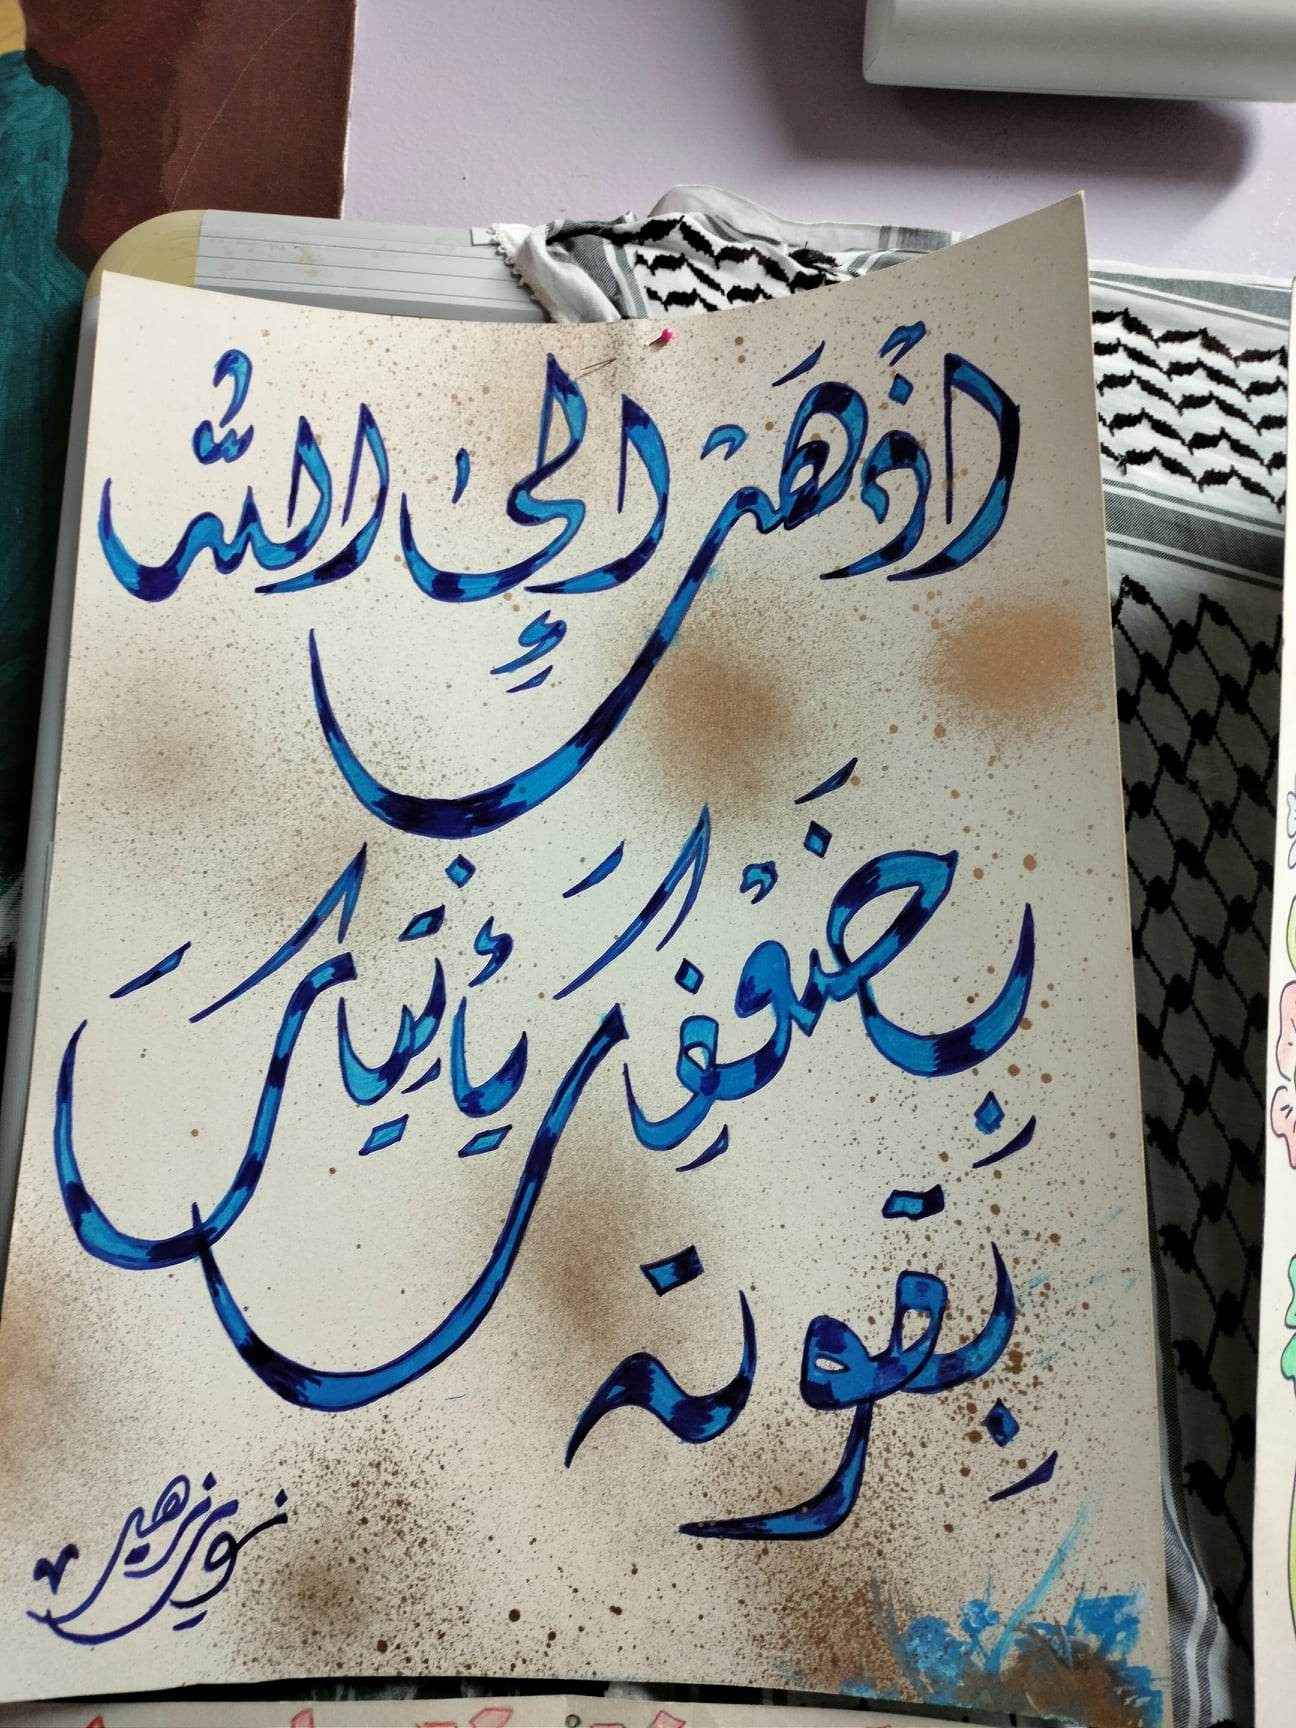 اذْهَبْ إِلَى اللّٰه
بِضَعْفِكَ يَأْتِيكَ
بِقوته
نور زهير